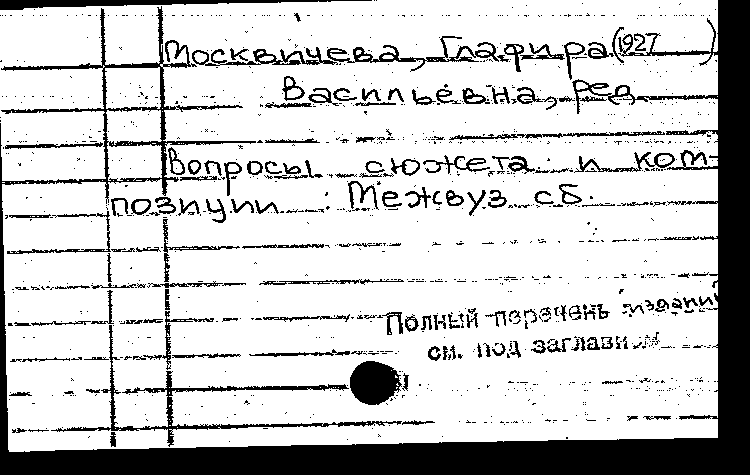 Москвичева, Глафира (1927 )
Васильевна, ред.
Вопросы сюжета и ком-
позиции : Межвуз сб.
Полный перечень изданий
см. под заглавием